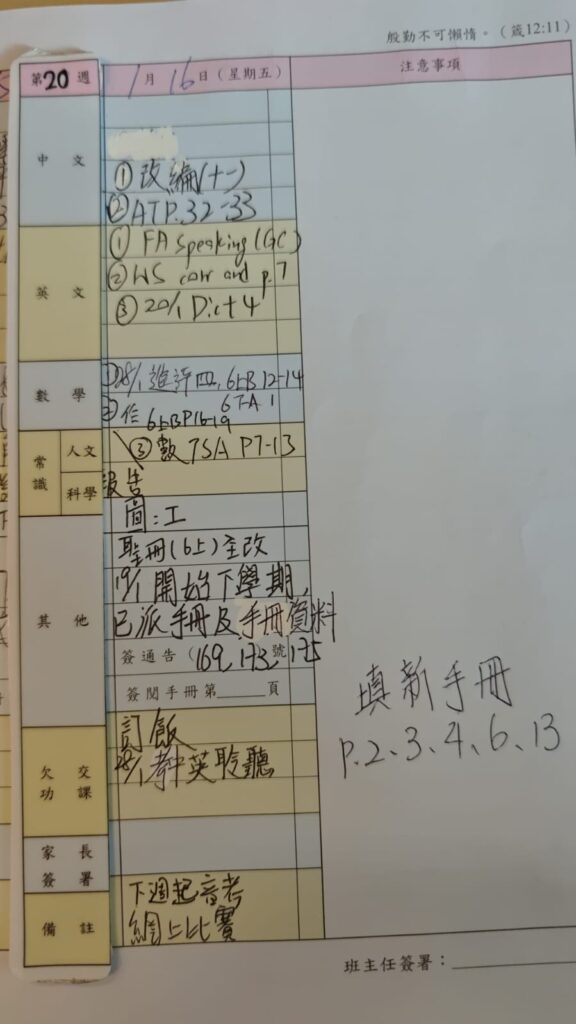 殷勤不可懶惰。(箴12:11)
第20週 1月16日(星期五) 注意事項
中文
① 改編(十一)
② ATP.32-33
英文
① FA Speaking (GC)
② WS corr and p.7
③ 20/1 Dict 4
數學
① 28/1 進評四, 6上B 12-14
6下A 1
② 作 6上BP16-19
③ 數 TSA P7-13
常識 人文 科學
報告
圖:工
其他
聖冊(6上)全改
19/1 開始下學期,
已派手冊及手冊資料
簽通告(169, 173號 175
簽閱手冊第______頁
填新手冊
P.2、3、4、6、13
訂飯
欠交功課
28/1 考中英聆聽
家長簽署
備註
下週起音考
網上比賽
班主任簽署: